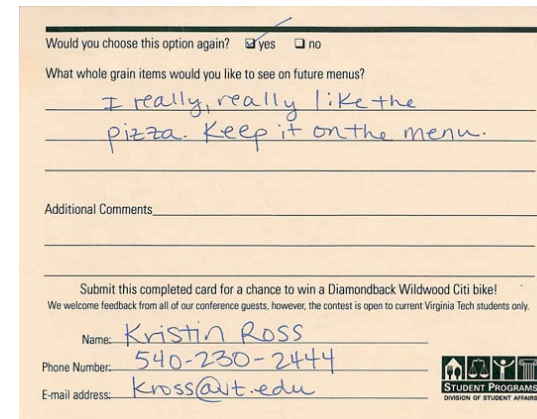 Would you choose this option again? yes no
What whole grain items would you like to see on future menus?
I really, really like the
pizza. Keep it on the menu.
Additional Comments
Submit this completed card for a chance to win a Diamondback Wildwood Citi bike!
We welcome feedback from all of our conference guests, however, the contest is open to current Virginia Tech students only.
Name: Kristin Ross
Phone Number: 540-230-2444
E-mail address: kross@vt.edu
STUDENT PROGRAMS
DIVISION OF STUDENT AFFAIRS